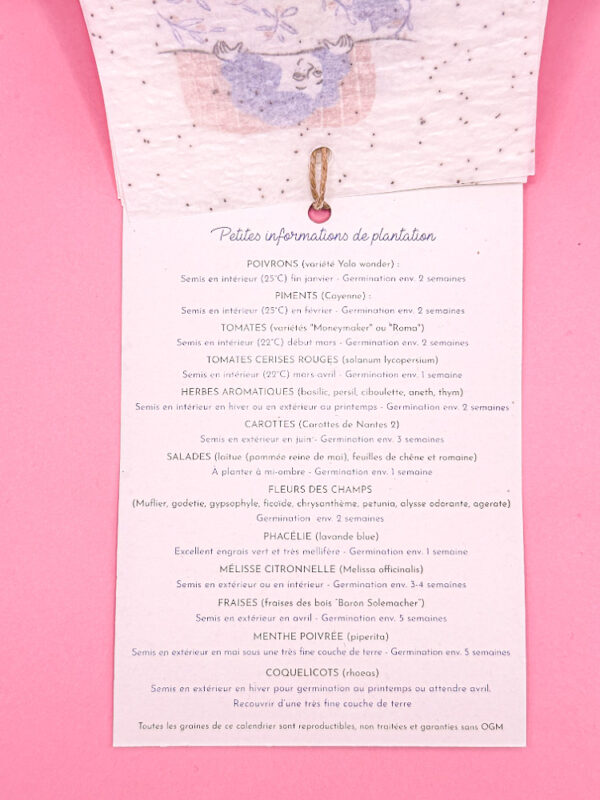 Petites informations de plantation
POIVRONS (variété Yolo wonder) :
Semis en intérieur (25°C) fin janvier - Germination env. 2 semaines
PIMENTS (Cayenne) :
Semis en intérieur (25°C) en février - Germination env. 2 semaines
TOMATES (variétés "Moneymaker" ou "Roma")
Semis en intérieur (22°C) début mars - Germination env. 2 semaines
TOMATES CERISES ROUGES (solanum lycopersium)
Semis en intérieur (22°C) mars-avril - Germination env. 1 semaine
HERBES AROMATIQUES (basilic, persil, ciboulette, aneth, thym)
Semis en intérieur en hiver ou en extérieur au printemps - Germination env. 2 semaines
CAROTTES (Carottes de Nantes 2)
Semis en extérieur en juin - Germination env. 3 semaines
SALADES (laitue (pommée reine de mai), feuilles de chêne et romaine)
À planter à mi-ombre - Germination env. 1 semaine
FLEURS DES CHAMPS
(Muflier, godetie, gypsophyle, ficoïde, chrysanthème, petunia, alysse odorante, agerate)
Germination env. 2 semaines
PHACÉLIE (lavande blue)
Excellent engrais vert et très mellifère - Germination env. 1 semaine
MÉLISSE CITRONNELLE (Melissa officinalis)
Semis en extérieur ou en intérieur - Germination env. 3-4 semaines
FRAISES (fraises des bois "Baron Solemacher")
Semis en extérieur en avril - Germination env. 5 semaines
MENTHE POIVRÉE (piperita)
Semis en extérieur en mai sous une très fine couche de terre - Germination env. 5 semaines
COQUELICOTS (rhoeas)
Semis en extérieur en hiver pour germination au printemps ou attendre avril.
Recouvrir d'une très fine couche de terre
Toutes les graines de ce calendrier sont reproductibles, non traitées et garanties sans OGM